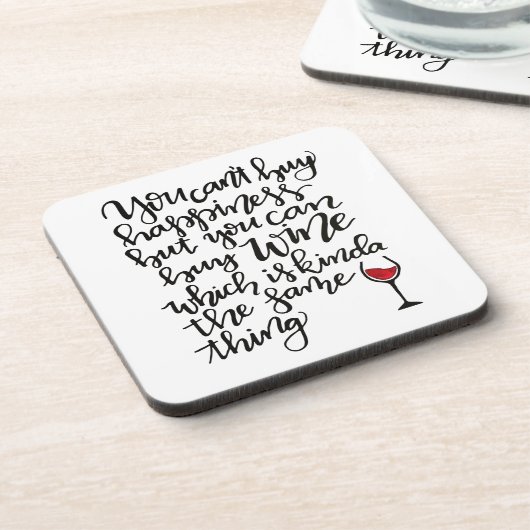 You can't buy
happiness
but you can
buy Wine
which is kinda
the same
thing
thing